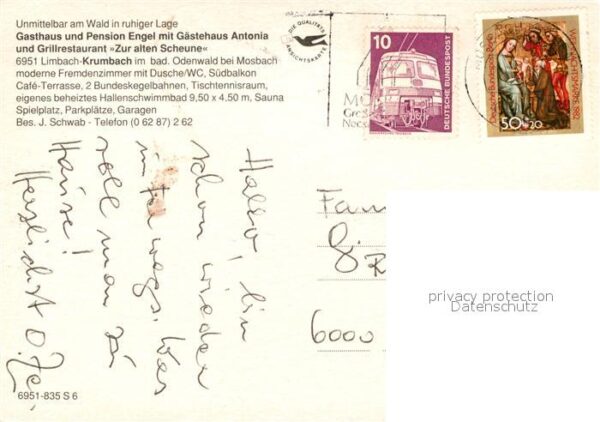 Unmittelbar am Wald in ruhiger Lage
Gasthaus und Pension Engel mit Gästehaus Antonia
und Grillrestaurant »Zur alten Scheune«
6951 Limbach-Krumbach im bad. Odenwald bei Mosbach
moderne Fremdenzimmer mit Dusche/WC, Südbalkon
Café-Terrasse, 2 Bundeskegelbahnen, Tischtennisraum,
eigenes beheiztes Hallenschwimmbad 9,50 x 4.50 m, Sauna
Spielplatz, Parkplätze, Garagen
Bes. J. Schwab - Telefon (0 62 87) 2 62
DIE QUALITÄTS
ANSICHTSKARTE
10
DEUTSCHE BUNDESPOST
50+20
Deutsche Bundespost Berlin
WEIHNACHTSMARKE 1982
Hallo, bin
schon wieder
unterwegs. Was
soll man zu
Hause!
Herzlichst
Fam
6000
privacy protection
Datenschutz
6951-835 S 6